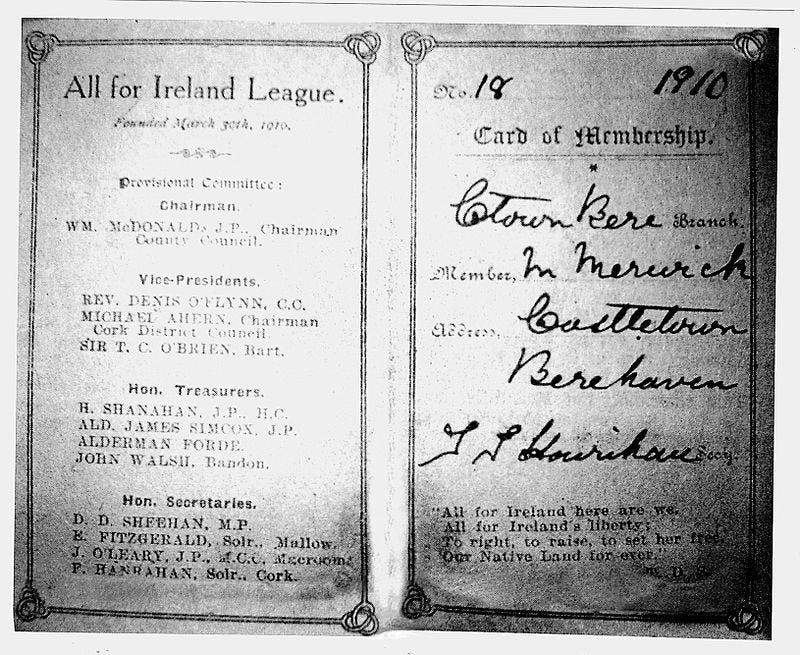 All for Ireland League.
Founded March 30th, 1910.
Provisional Committee:
Chairman.
WM. McDONALD, J.P., Chairman
County Council.
Vice-Presidents.
REV. DENIS O'FLYNN, C.C.
MICHAEL AHERN, Chairman
Cork District Council.
SIR T. C. O'BRIEN, Bart.
Hon. Treasurers.
H. SHANAHAN, J.P., H.C.
ALD. JAMES SIMCOX, J.P.
ALDERMAN FORDE.
JOHN WALSH, Bandon.
Hon. Secretaries.
D. D. SHEEHAN, M.P.
E. FITZGERALD, Solr., Mallow.
J. O'LEARY, J.P., M.C.C., Macroom.
F. HANRAHAN, Solr., Cork.
No. 18 1910
Card of Membership.
Ctown Bere Branch.
Member, M Merwick
Address, Castletown
Berehaven
Hourihan Secy.
"All for Ireland here are we,
All for Ireland's liberty;
To right, to raise, to set her free,
Our Native Land for ever."